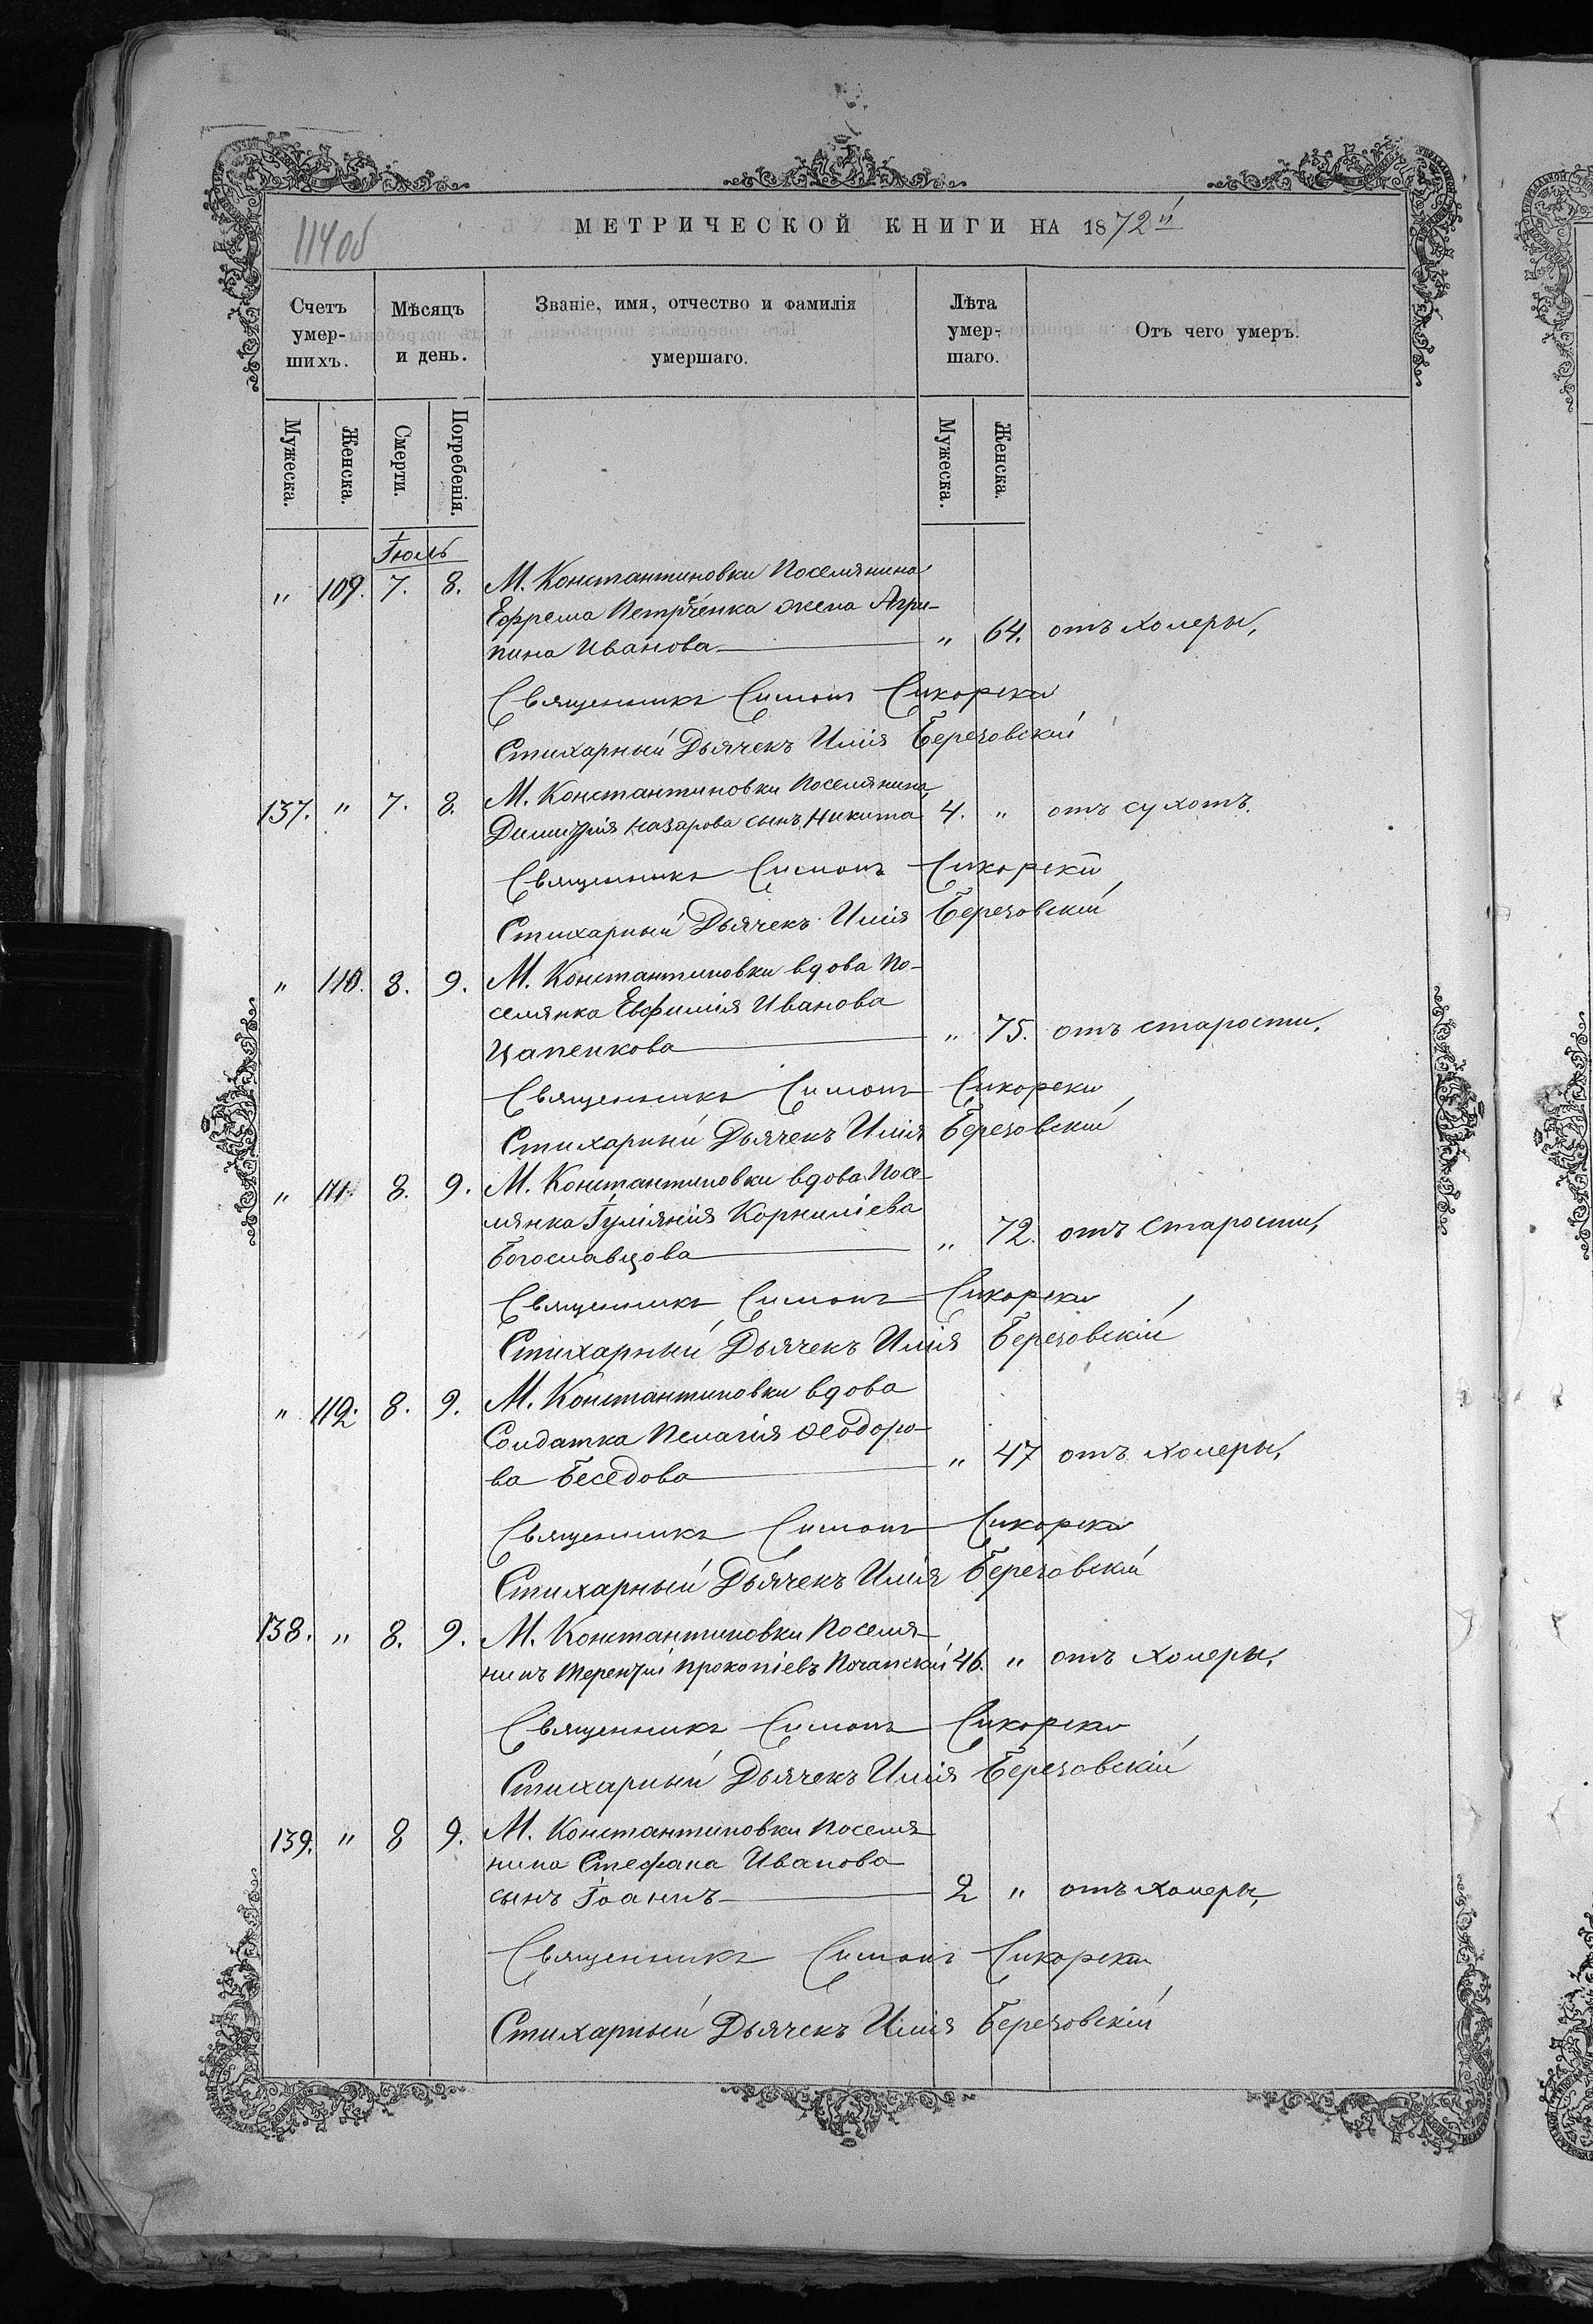 114об
МЕТРИЧЕСКОЙ КНИГИ НА 1872й
Счетъ умер-шихъ.
Мѣсяцъ и день.
Званіе, имя, отчество и фамилія умершаго.
Лѣта умер-шаго.
Отъ чего умеръ.
Мужеска. Женска. Смерти. Погребенія. Мужеска. Женска.
Іюль
" 109. 7. 8. М. Константиновки Поселянина
Ефрема Петрченка жена Агри-
пина Иванова " 64. отъ холеры,
Священникъ Симонъ Сикорскій
Стихарный Дьячекъ Илія Березовскій
137. " 7. 8. М. Константиновки Поселянина
Димитрія Назарова сынъ Никита 4. " отъ сухотъ.
Священникъ Симонъ Сикорскій
Стихарный Дьячекъ Илія Березовскій
" 110. 8. 9. М. Константиновки вдова По-
селянка Евфимія Иванова
Цапенкова " 75. отъ старости,
Священникъ Симонъ Сикорскій
Стихарный Дьячекъ Илія Березовскій
" 111. 8. 9. М. Константиновки вдова Посе-
лянка Іуліянія Корниліева
Богославцова " 72. отъ Старости,
Священникъ Симонъ Сикорскій
Стихарный Дьячекъ Илія Березовскій
" 112. 8. 9. М. Константиновки вдова
Солдатка Пелагія Ѳеодоро-
ва Беседова " 47 отъ холеры,
Священникъ Симонъ Сикорскій
Стихарный Дьячекъ Илія Березовскій
138. " 8. 9. М. Константиновки Поселя-
нинъ Терентій Прокопіевъ 46. " отъ холеры,
Священникъ Симонъ Сикорскій
Стихарный Дьячекъ Илія Березовскій
139. " 8 9. М. Константиновки Поселя-
нина Стефана Иванова
сынъ Іоаннъ 2 " отъ холеры,
Священникъ Симонъ Сикорскій
Стихарный Дьячекъ Илія Березовскій